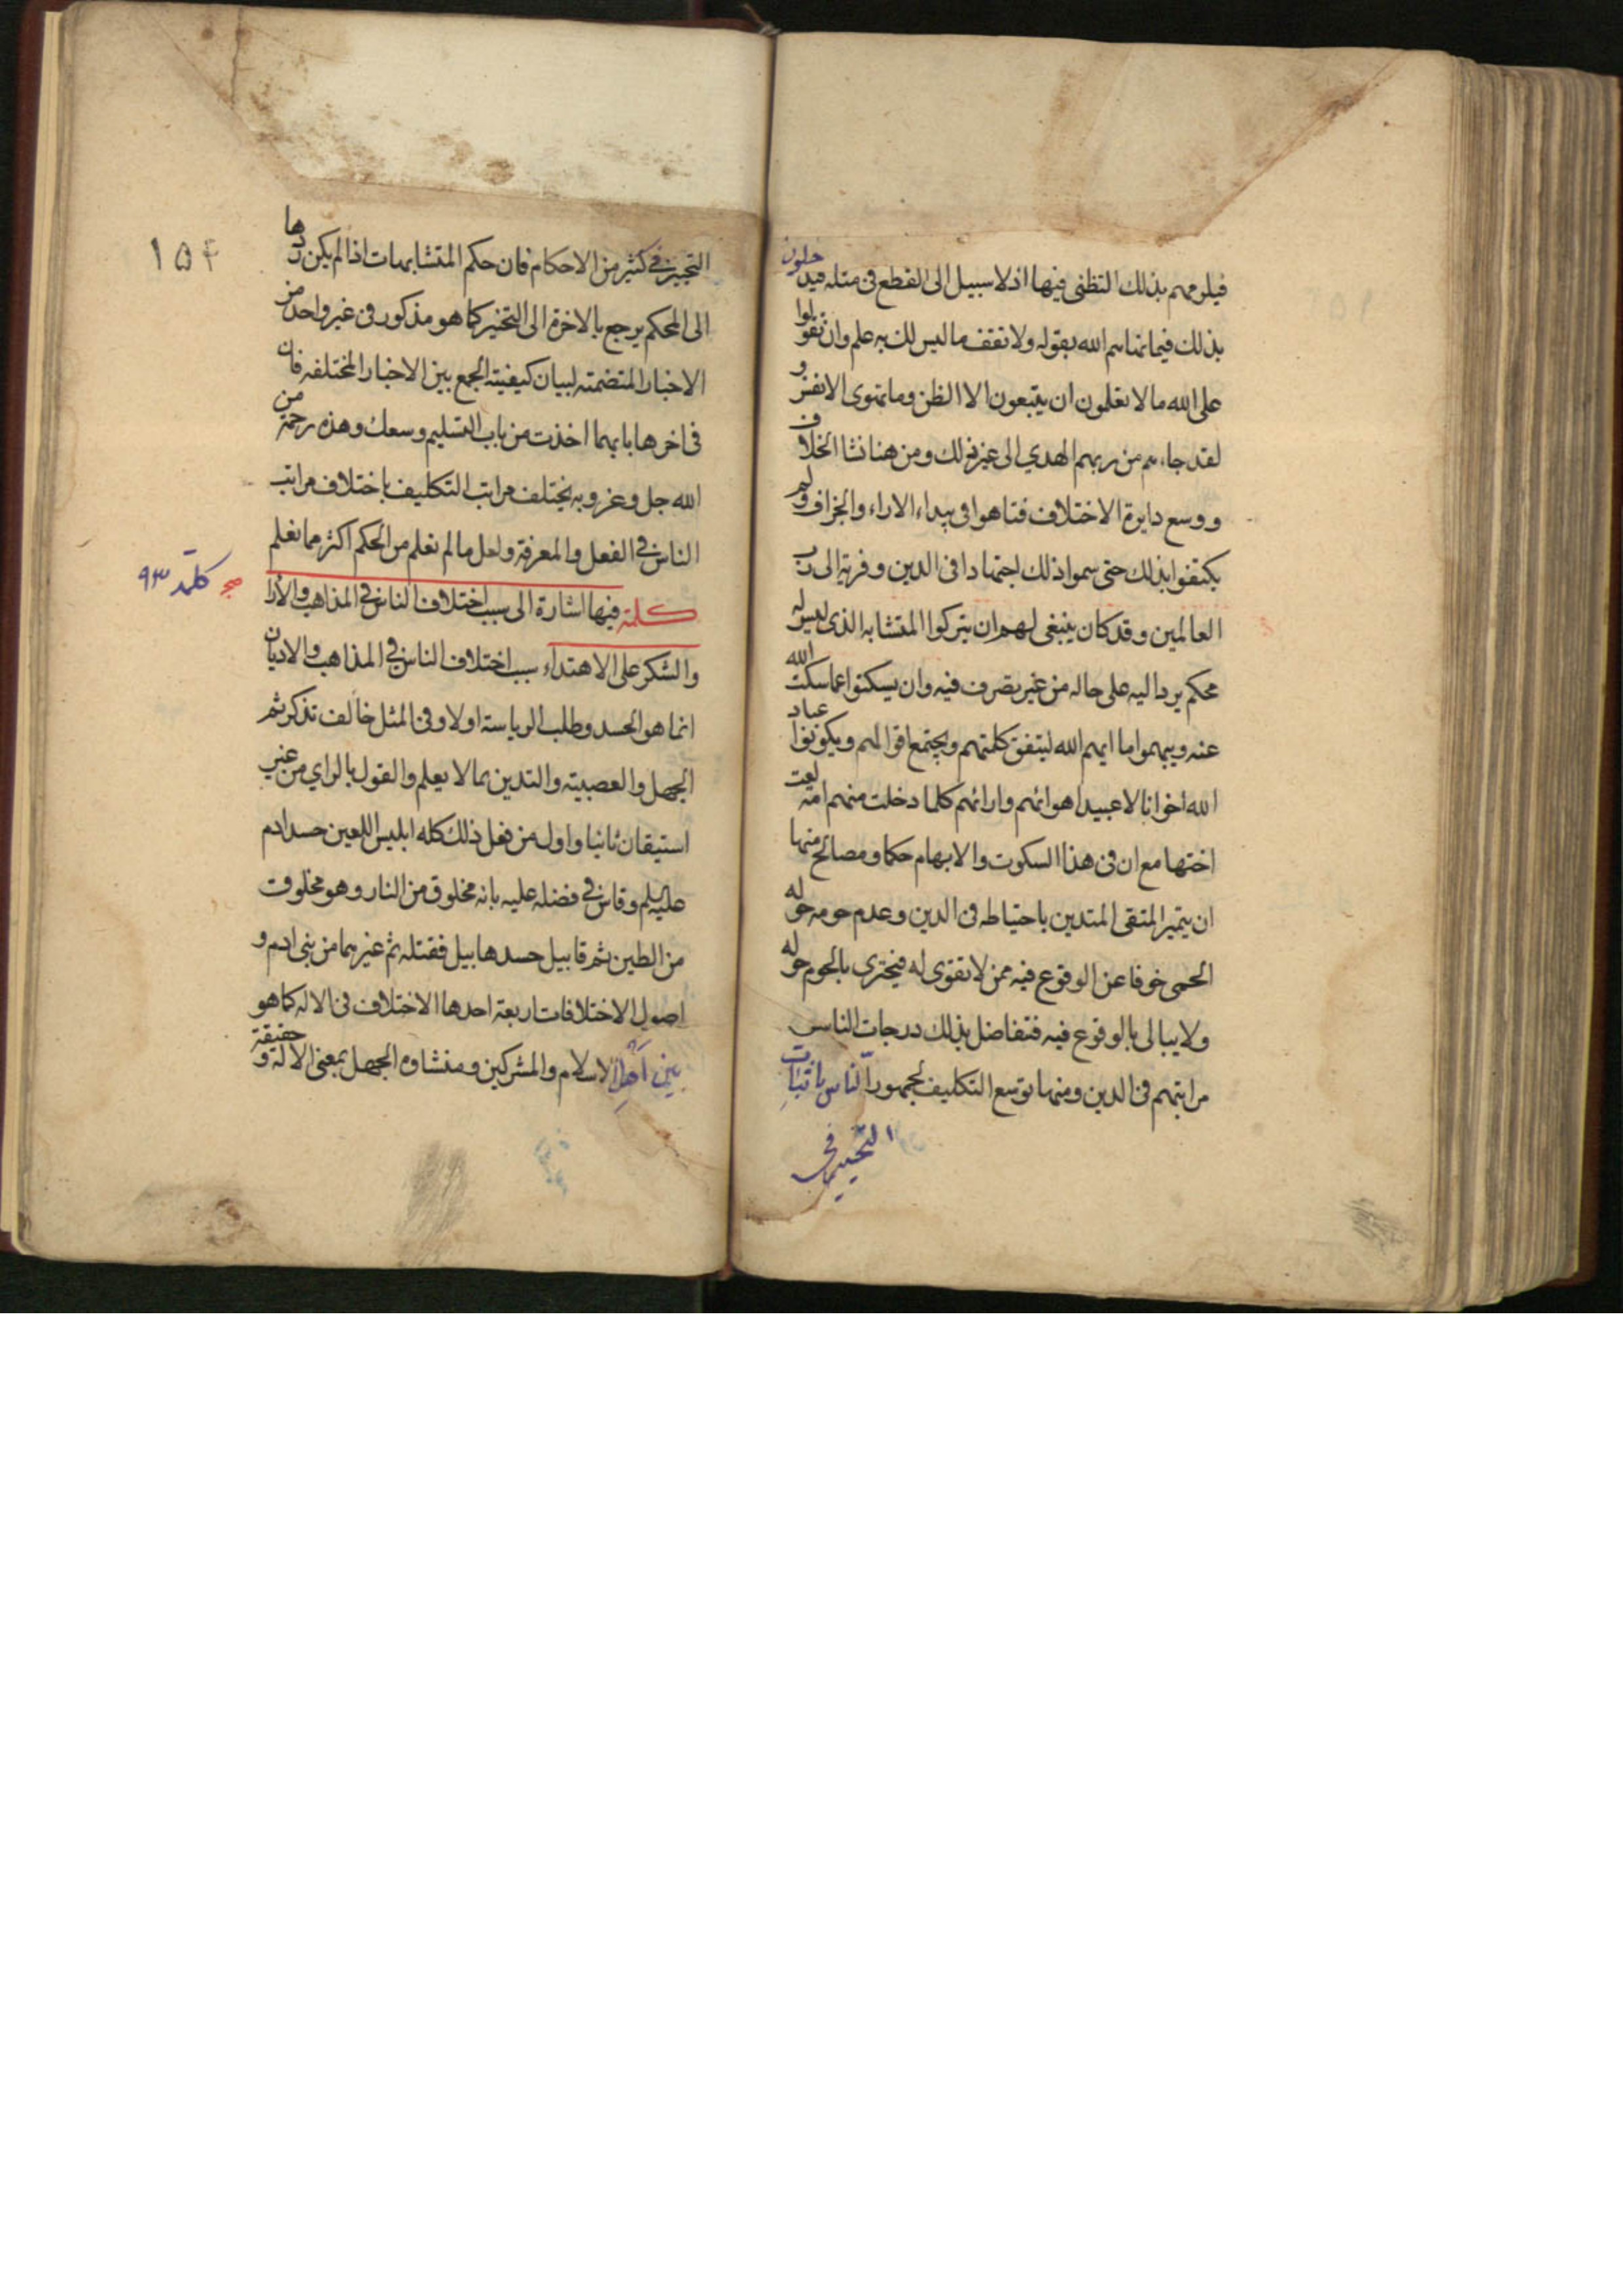 فيلزمهم بذلك التظنى فيها اذ لا سبيل الى القطع فى مثله فيدخلون
بذلك فيما نهاهم الله بقوله ولا تقف ما ليس لك به علم وان تقولوا
على الله ما لا تعلمون ان يتبعون الا الظن وما تهوى الانفس و
لقد جاءهم من ربهم الهدي الى غير ذلك ومن هنا نشا الخلاف
ووسع دايرة الاختلاف فتاهوا فى بيداء الاراء والجزاف ولم
يكتفوا بذلك حتى سموا ذلك اجتهادا فى الدين وقربة الى رب
العالمين وقد كان ينبغى لهم ان يتركوا المتشابه الذى ليس له
محكم يرد اليه على حاله من غير تصرف فيه وان يسكتوا عما سكت الله
عنه ويبهموا ما ابهم الله ليتفق كلمتهم ويجتمع اقوالهم ويكونوا عباد
الله اخوانا لا عبيد اهوائهم وارائهم كلما دخلت منهم امة لعنت
اختها مع ان فى هذا السكوت والابهام حكما ومصالح منها
ان يتميز المتقى المتدين باحتياطه فى الدين وعدم حومه حوله
الحمى خوفا عن الوقوع فيه ممن لا تقوى له فيجترى بالحوم حوله
ولا يبالى بالوقوع فيه فتفاضل بذلك درجات الناس
مراتبهم فى الدين ومنها توسع التكليف لجمهور النّاس باثبات
التخيير فى
التخيير فى كثير من الاحكام فان حكم المتشابهات اذا لم يكن ردها
الى المحكم يرجع بالاخرة الى التخيير كما هو مذكور فى غير واحد من
الاخبار المتضمنه لبيان كيفيته الجمع بين الاخبار المختلفه فان
فى اخرها بايهما اخذت من باب التسليم وسعك وهذه رحمة من
الله جل وعز وبه يختلف مراتب التكليف باختلاف مراتب
الناس فى الفعل والمعرفة ولعل ما لم نعلم من الحكم اكثر مما نعلم
كلمة فيها اشارة الى سبب اختلاف الناس فى المذاهب والأرا
والشكر على الاهتداء سبب اختلاف الناس فى المذاهب والاديان
انما هو الحسد وطلب الرياسة اولا وفى المثل خالف تذكر ثم
الجهل والعصبيته والتدين بما لا يعلم والقول بالراي من غير
استيقان ثانيا واول من فعل ذلك كله ابليس اللعين حسد ادم
عليه السلم وقاس فى فضله عليه بانه مخلوق من النار وهو مخلوق
من الطين ثم قابيل حسد هابيل فقتله ثم غيرهما من بنى ادم و
اصول الاختلافات اربعة احدها الاختلاف فى الاله كما هو
بَيْنَ أَهْلِ الاسلام والمشركين ومنشاوه الجهل بمعنى الاله وحقيقة
١٥۴
كلمة ٩٣